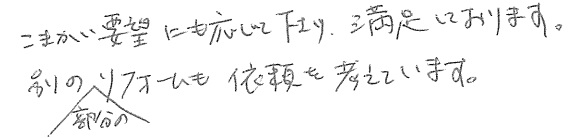 こまかい要望にも応じて下さり、満足しております。
別の部分のリフォームも依頼を考えています。